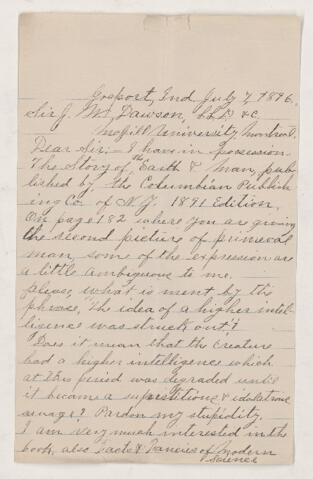 Groport, Ind July 7, 1896.
Sir J. Wm. Dawson, LL.D. &c.
McGill University, Montreal.
Dear Sir:- I have in possession
The Story of the Earth & Man, pub-
lished by the Columbian Publish
ing Co. of N.Y. 1891 Edition.
On page 182 where you are giving
the second picture of primeval
man, some of the expression are
a little ambiguous to me.
please, what is ment by the
phrase, "The idea of a higher intel-
ligence was struck out"?
Does it mean that the creature
had a higher intelligence which
at this period was degraded until
it became a superstitious & idolatrous
savage? Pardon my stupidity.
I am very much interested in the
book, also Facts & Fancies of Modern
Science